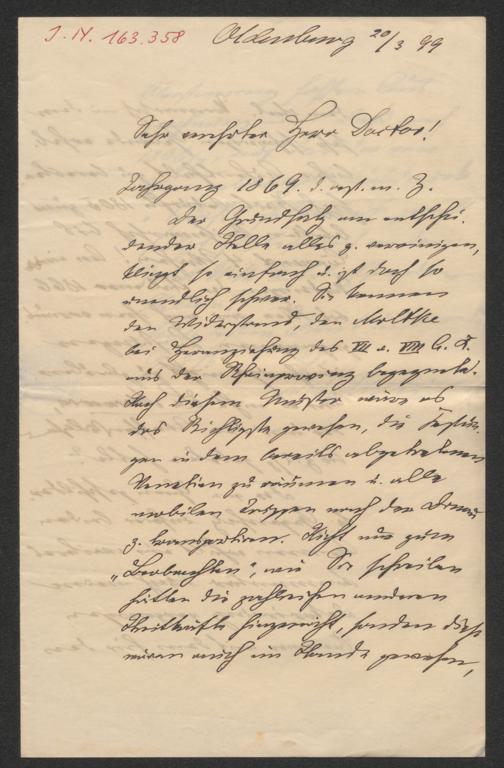 J. N. 163.358 Oldenburg 20/3 99
Sehr verehrter Herr Doctor!
Jahrgang 1869. d. östr. m. Z.
Der Grundsatz am entschei-
dender Stelle alles z. vereinigen,
klingt so einfach u. ist doch so
unendlich schwer. Sie kennen
den Widerstand, den Moltke
bei Heranziehung des VII u. VIII C. K.
aus der Rheinprovinz begegnete.
Nach diesem Muster wäre es
das Richtigste gewesen, die Festun-
gen in dem bereits abgetretenen
Venetien zu räumen u. alle
mobilen Truppen nach der Donau
z. transportiren. Nicht nur zum
„Beobachten", wie Sie schreiben
hätten die zahlreichen anderen
Streitkräfte hingereicht, sondern diese
wären auch im Stande gewesen,